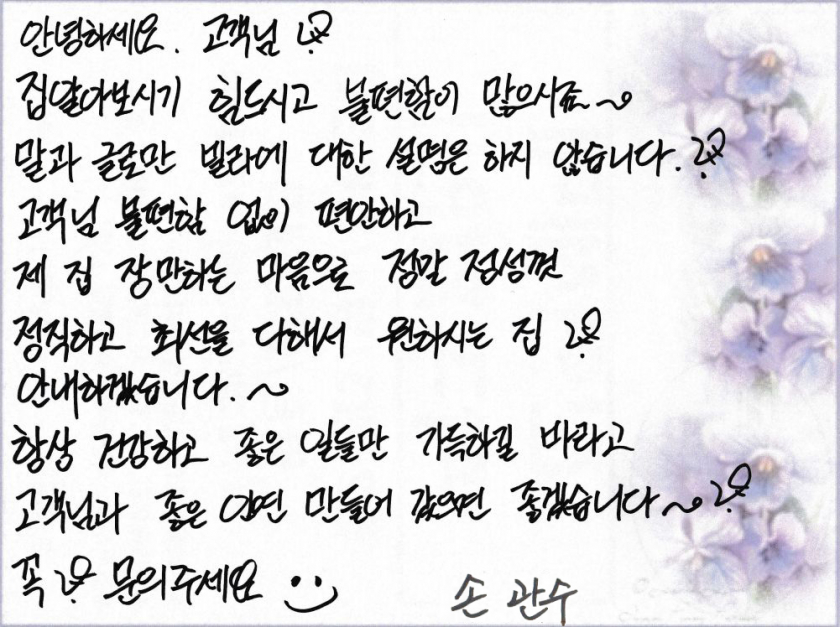 안녕하세요. 고객님
집알아보시기 힘드시고 불편함이 많으시죠~
말과 글로만 빌라에 대한 설명은 하지 않습니다.
고객님 불편함 없이 편안하고
제 집 장만하는 마음으로 정말 정성껏
정직하고 최선을 다해서 원하시는 집
안내하겠습니다.~
항상 건강하고 좋은 일들만 가득하길 바라고
고객님과 좋은 인연 만들어 갔으면 좋겠습니다~
꼭 문의주세요
손관수